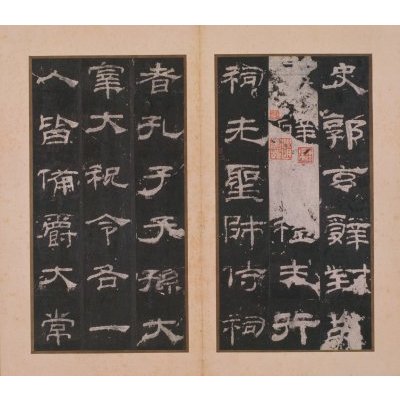 史郭玄辭對故
辟礼未行
祠先聖師侍祠
者孔子子孫大
宰大祝令各一
人皆備爵大常